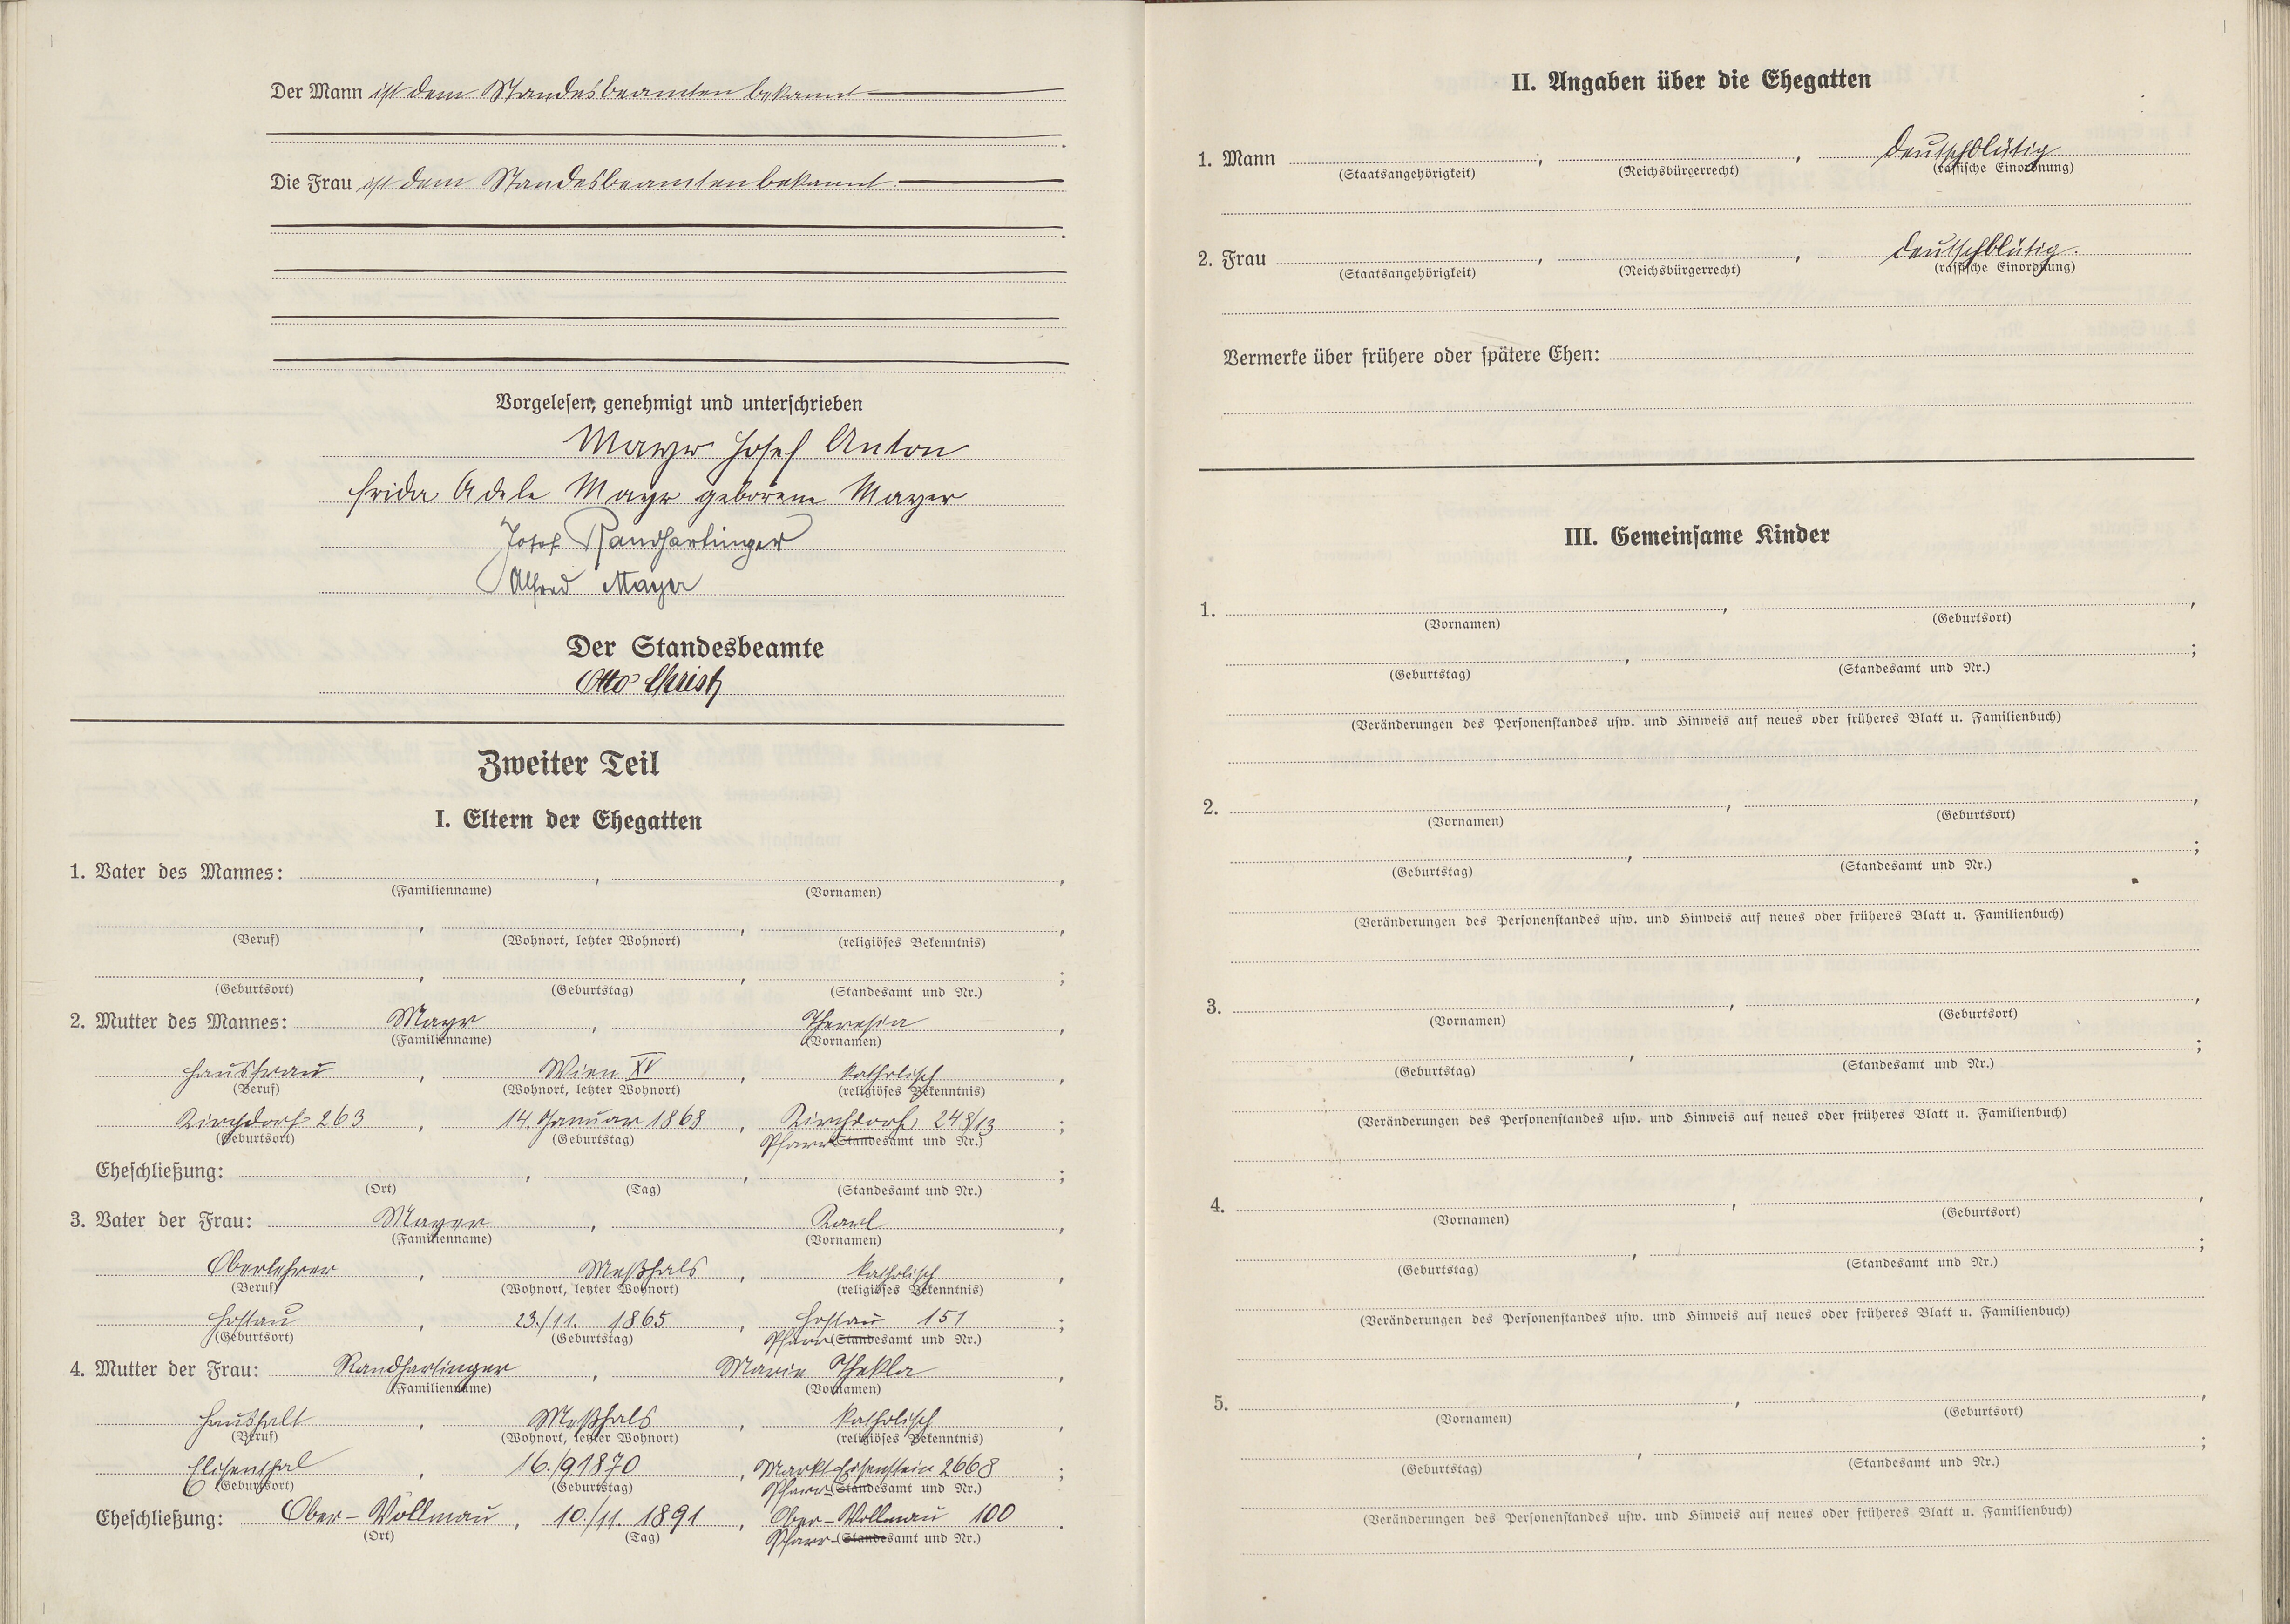 Der Mann ist dem Standesbeamten bekannt
Die Frau ist dem Standesbeamten bekannt.
Vorgelesen, genehmigt und unterschrieben
Mayr Josef Anton
Frida Adele Mayr geborene Mayer
Josef Randhartinger
Alfred Mayer
Der Standesbeamte
Otto Christ
Zweiter Teil
I. Eltern der Ehegatten
1. Vater des Mannes: , ,
(Familienname) (Vornamen)
, , ,
(Beruf) (Wohnort, letzter Wohnort) (religiöses Bekenntnis)
, , ;
(Geburtsort) (Geburtstag) (Standesamt und Nr.)
2. Mutter des Mannes: Mayr , Theresia ,
(Familienname) (Vornamen)
Hausfrau , Wien XV , katholisch ,
(Beruf) (Wohnort, letzter Wohnort) (religiöses Bekenntnis)
Kirchdorf 263 , 14. Januar 1868 , Kirchdorf 248/13 ;
(Geburtsort) (Geburtstag) Pfarr (Standesamt und Nr.)
Eheschließung: , , ;
(Ort) (Tag) (Standesamt und Nr.)
3. Vater der Frau: Mayer , Karl ,
(Familienname) (Vornamen)
Oberlehrer , Meßhals , katholisch ,
(Beruf) (Wohnort, letzter Wohnort) (religiöses Bekenntnis)
Hostau , 23./11. 1865 , Hostau 151 ;
(Geburtsort) (Geburtstag) Pfarr (Standesamt und Nr.)
4. Mutter der Frau: Randhartinger , Marie Thekla ,
(Familienname) (Vornamen)
Haushalt , Meßhals , katholisch ,
(Beruf) (Wohnort, letzter Wohnort) (religiöses Bekenntnis)
Elisenthal , 16./9 1870 , Markt Eisenstein 2668 ;
(Geburtsort) (Geburtstag) Pfarr (Standesamt und Nr.)
Eheschließung: Ober-Vollmau , 10./11. 1891 , Ober-Vollmau 100 .
(Ort) (Tag) Pfarr- (Standesamt und Nr.)
II. Angaben über die Ehegatten
1. Mann , , deutschblütig
(Staatsangehörigkeit) (Reichsbürgerrecht) (rassische Einordnung)
2. Frau , , deutschblütig.
(Staatsangehörigkeit) (Reichsbürgerrecht) (rassische Einordnung)
Vermerke über frühere oder spätere Ehen:
III. Gemeinsame Kinder
1. , ,
(Vornamen) (Geburtsort)
, ;
(Geburtstag) (Standesamt und Nr.)
(Veränderungen des Personenstandes usw. und Hinweis auf neues oder früheres Blatt u. Familienbuch)
2. , ,
(Vornamen) (Geburtsort)
, ;
(Geburtstag) (Standesamt und Nr.)
(Veränderungen des Personenstandes usw. und Hinweis auf neues oder früheres Blatt u. Familienbuch)
3. , ,
(Vornamen) (Geburtsort)
, ;
(Geburtstag) (Standesamt und Nr.)
(Veränderungen des Personenstandes usw. und Hinweis auf neues oder früheres Blatt u. Familienbuch)
4. , ,
(Vornamen) (Geburtsort)
, ;
(Geburtstag) (Standesamt und Nr.)
(Veränderungen des Personenstandes usw. und Hinweis auf neues oder früheres Blatt u. Familienbuch)
5. , ,
(Vornamen) (Geburtsort)
, ;
(Geburtstag) (Standesamt und Nr.)
(Veränderungen des Personenstandes usw. und Hinweis auf neues oder früheres Blatt u. Familienbuch)